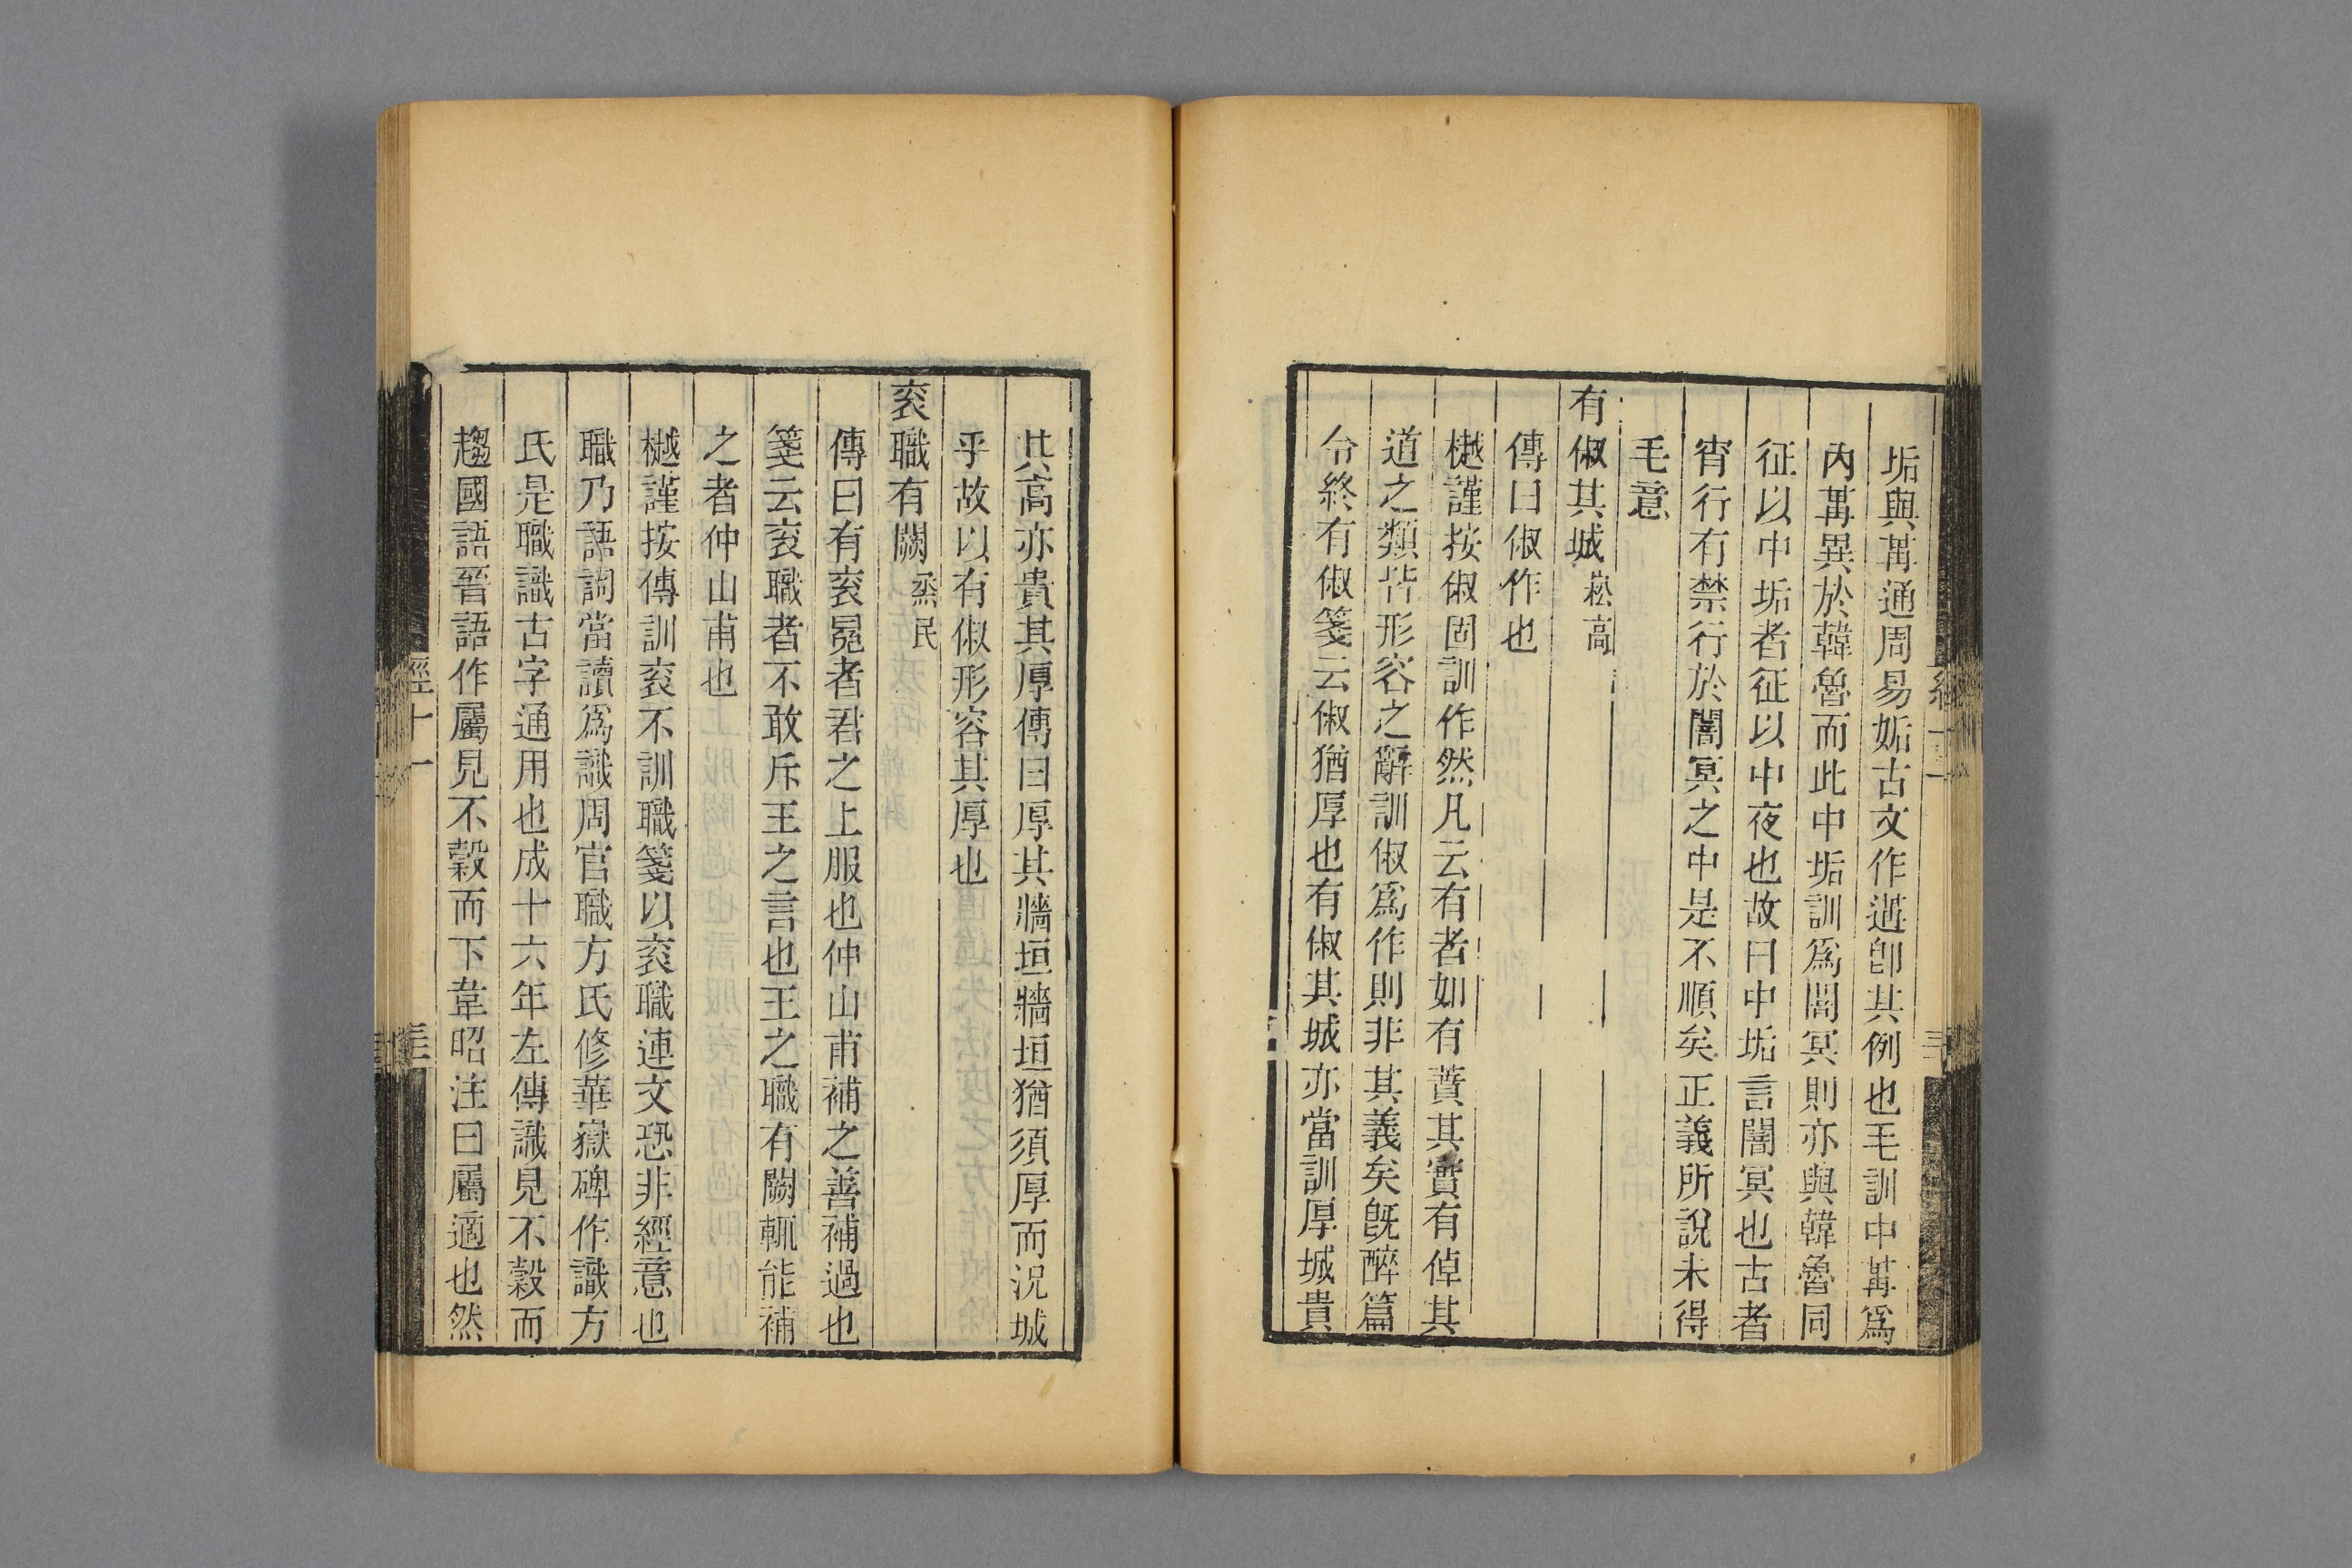 垢與冓通周易姤古文作遘卽其例也毛訓中冓爲
內冓異於韓魯而此中垢訓爲闇冥則亦與韓魯同
征以中垢者征以中夜也故曰中垢言闇冥也古者
宵行有禁行於闇冥之中是不順矣正義所說未得
毛意
有俶其城 崧高
傳曰俶作也
樾謹按俶固訓作然凡云有者如有蕡其實有倬其
道之類皆形容之辭訓俶爲作則非其義矣旣醉篇
令終有俶箋云俶猶厚也有俶其城亦當訓厚城貴
其高亦貴其厚傳曰厚其牆垣牆垣猶須厚而況城
乎故以有俶形容其厚也
袞職有闕 烝民
傳曰有袞冕者君之上服也仲山甫補之善補過也
箋云袞職者不敢斥王之言也王之職有闕輒能補
之者仲山甫也
樾謹按傳訓袞不訓職箋以袞職連文恐非經意也
職乃語詞當讀爲識周官職方氏修華嶽碑作識方
氏是職識古字通用也成十六年左傳識見不穀而
趨國語晉語作屬見不穀而下韋昭注曰屬適也然
經十一